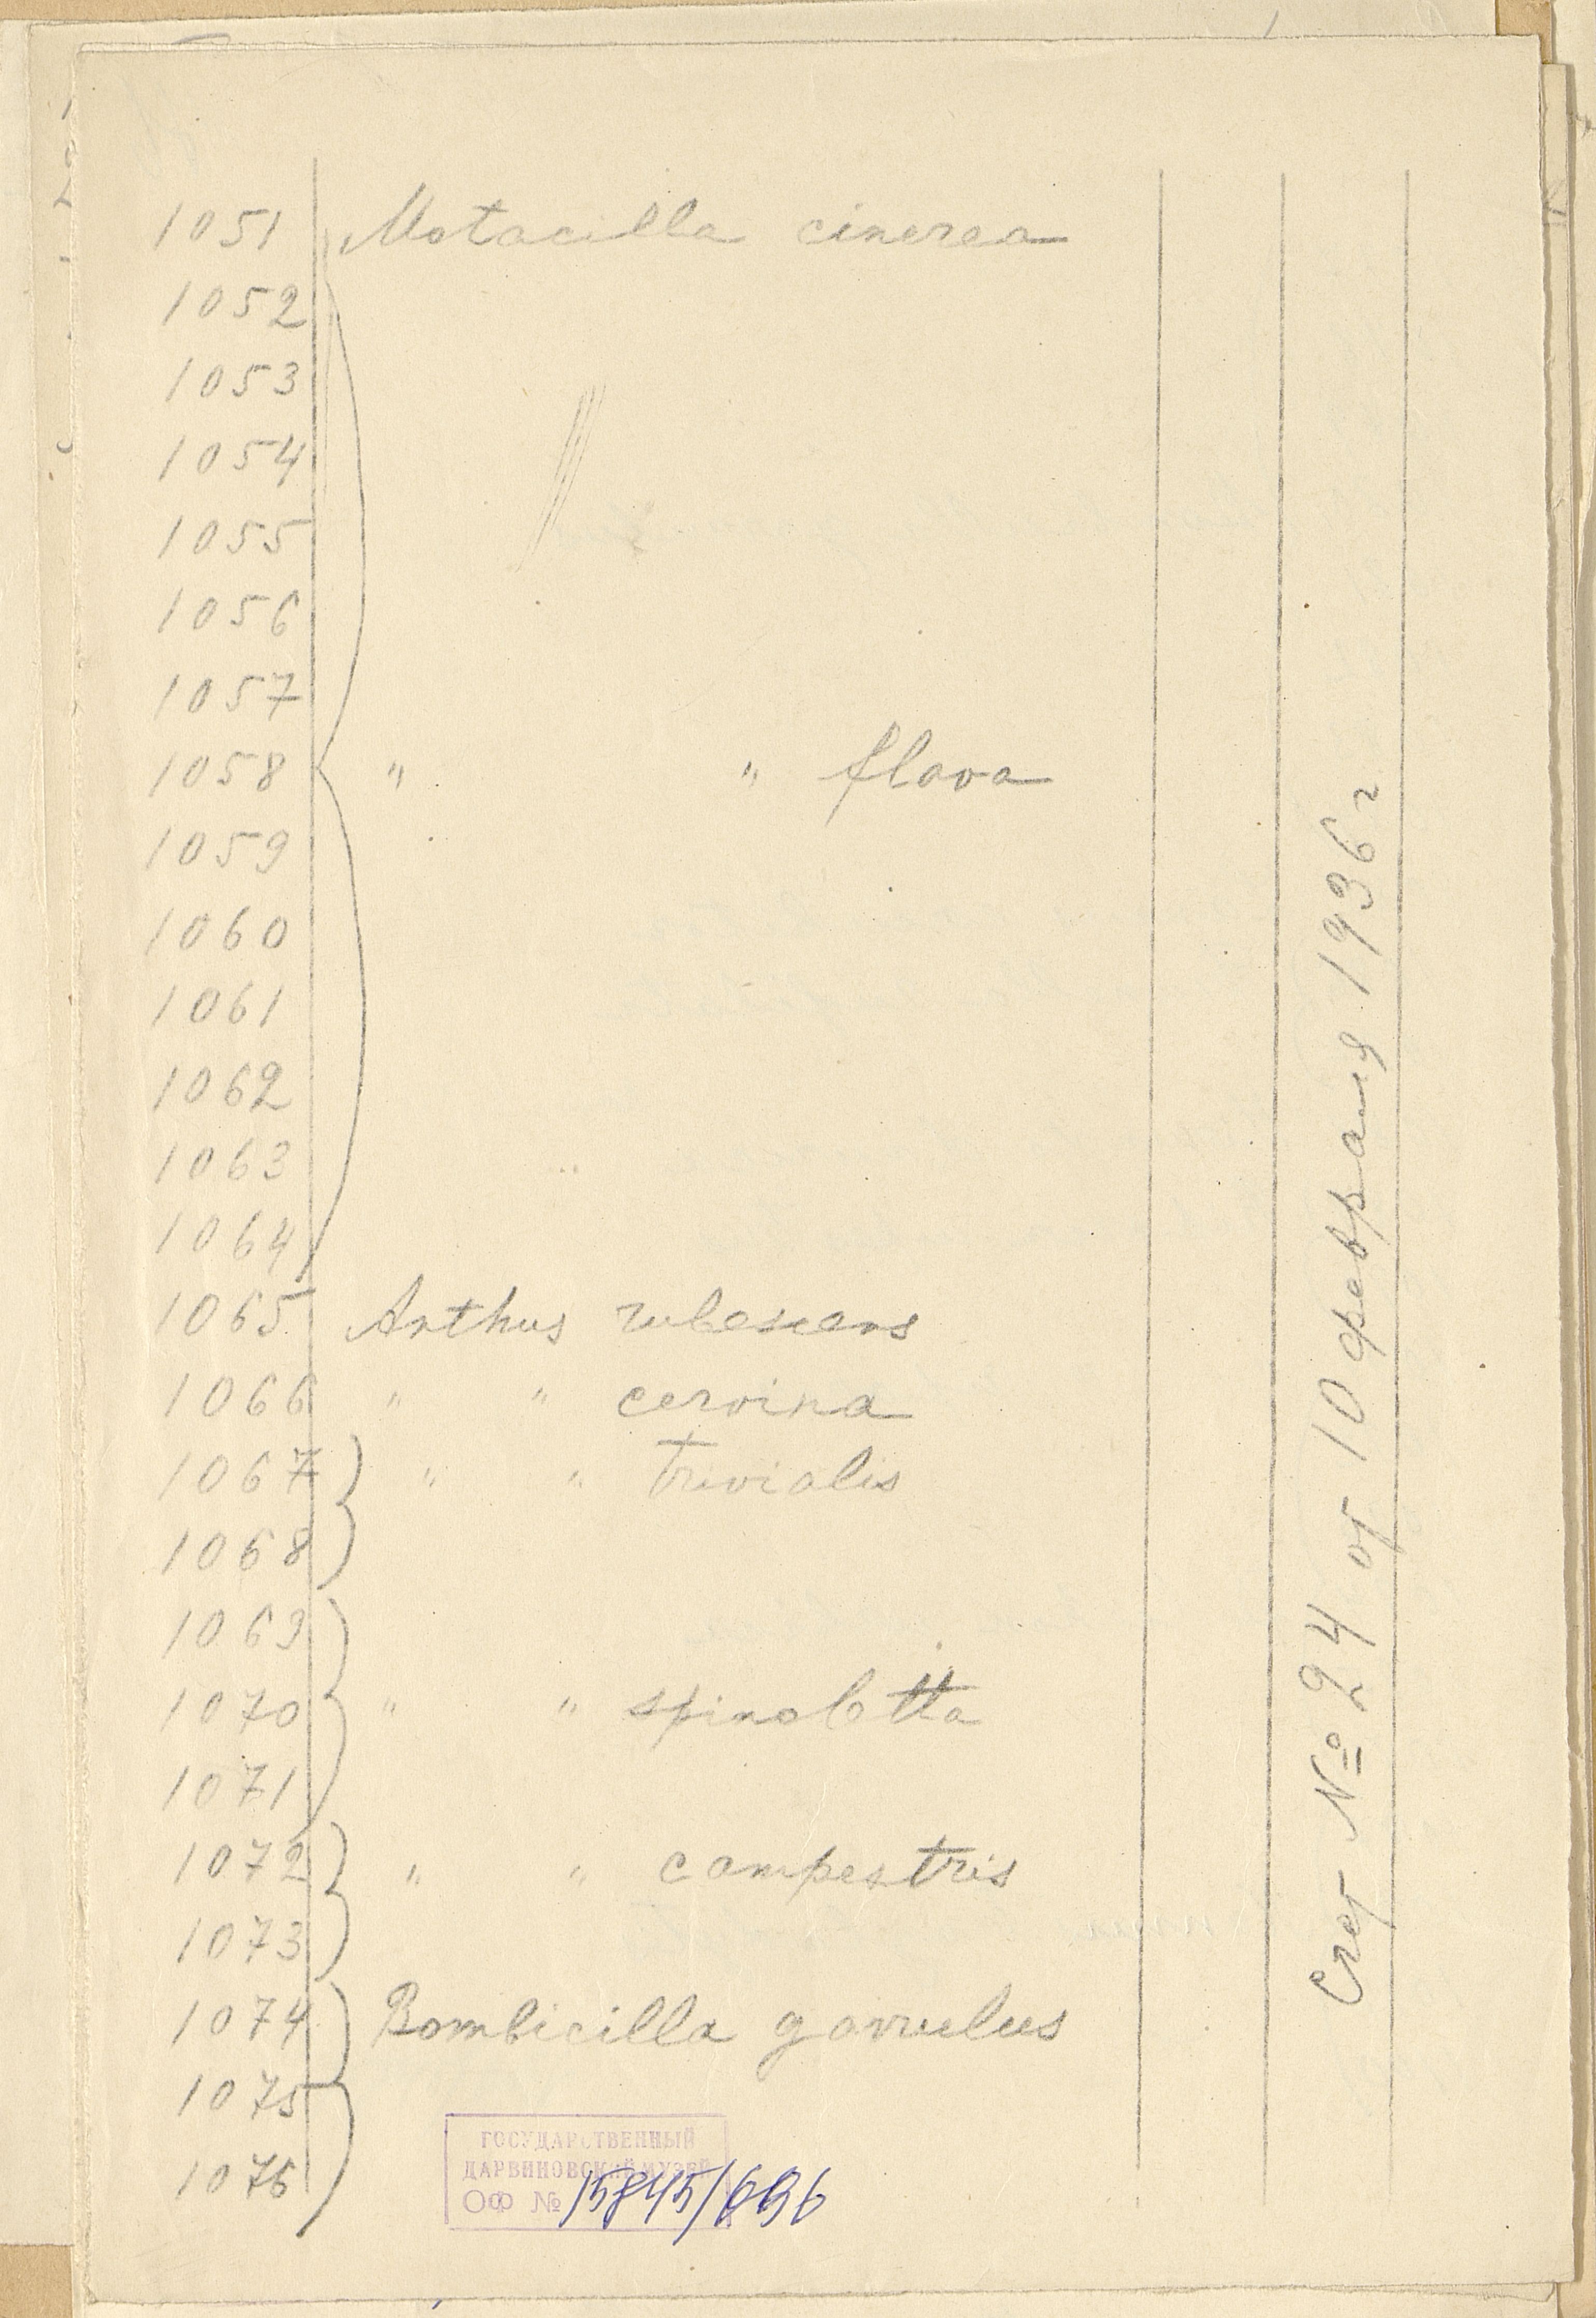 1051 Motacilla cinerea
1052
1053
1054
1055
1056
1057
1058 " " flava
1059
1060
1061
1062
1063
1064
1065 Anthus rubescens
1066 " " cervina
1067 " " trivialis
1068
1069
1070 " " spinoletta
1071
1072 " " campestris
1073
1074 Bombicilla garrulus
1075
1076
Счет № 24 от 10 февраля 1936 г
ГОСУДАРСТВЕННЫЙ
ДАРВИНОВСКИЙ МУЗЕЙ
ОФ № 15845/696